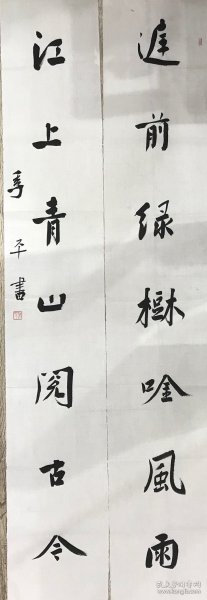 庭前绿树吟风雨
江上青山阅古今
季平書